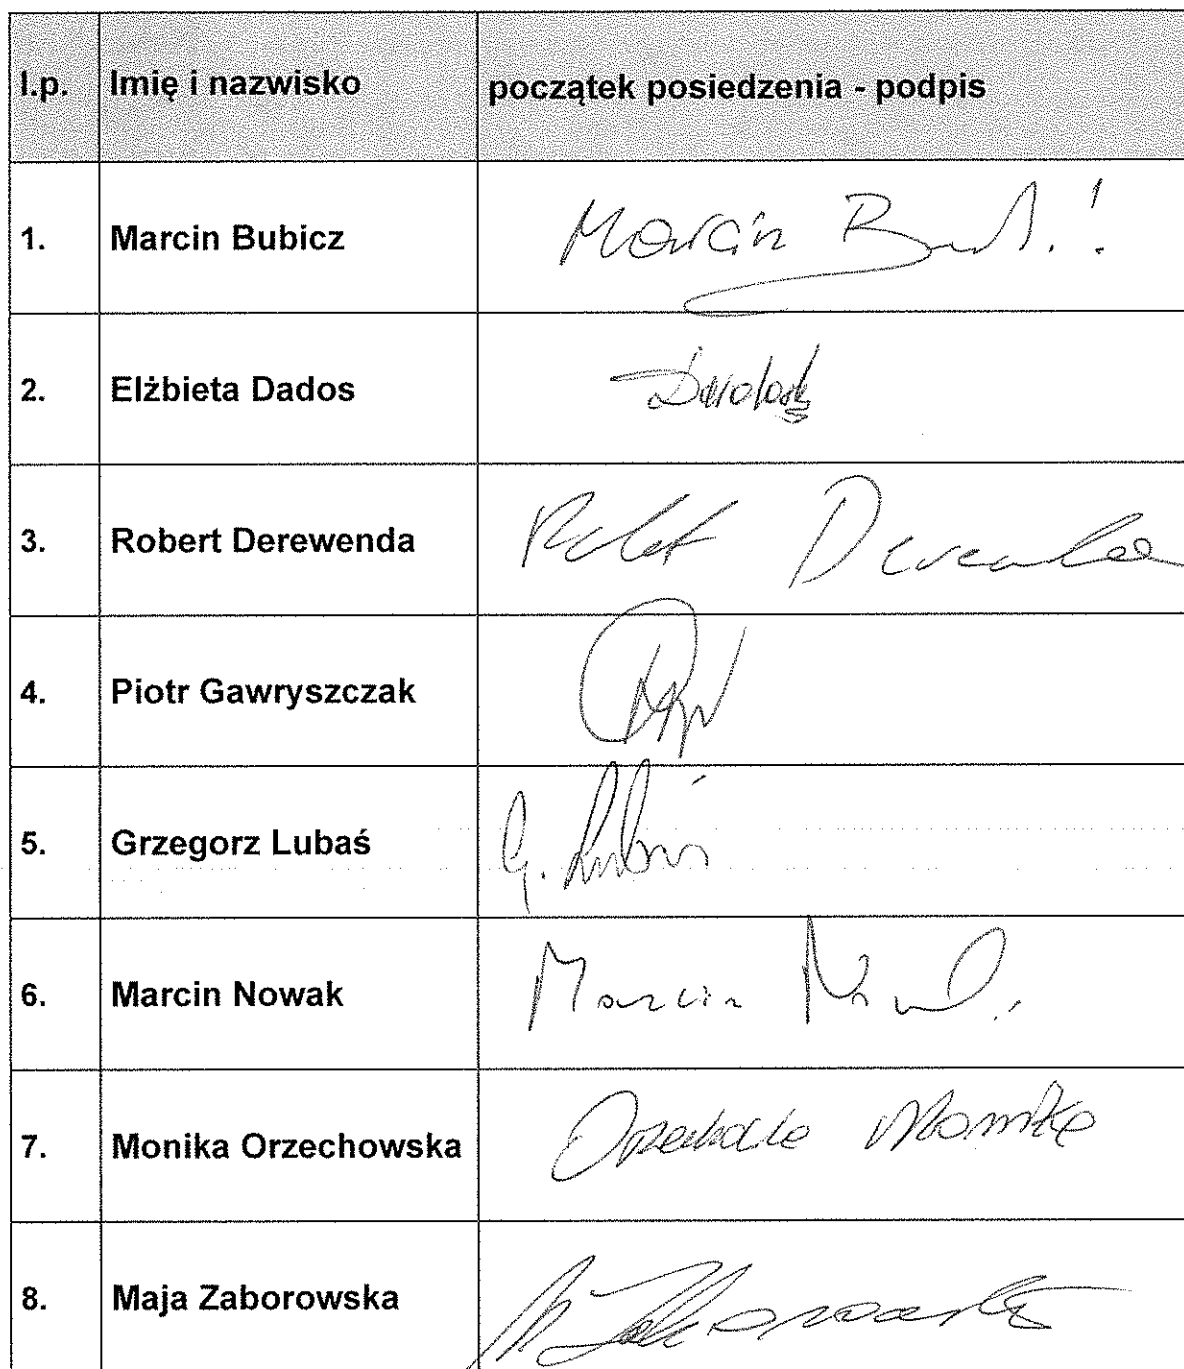 l.p. Imię i nazwisko początek posiedzenia - podpis
1. Marcin Bubicz Marcin
2. Elżbieta Dados
3. Robert Derewenda Robert Derewenda
4. Piotr Gawryszczak
5. Grzegorz Lubaś G. Lubaś
6. Marcin Nowak Marcin Nowak
7. Monika Orzechowska Monika
8. Maja Zaborowska M. Zaborowska